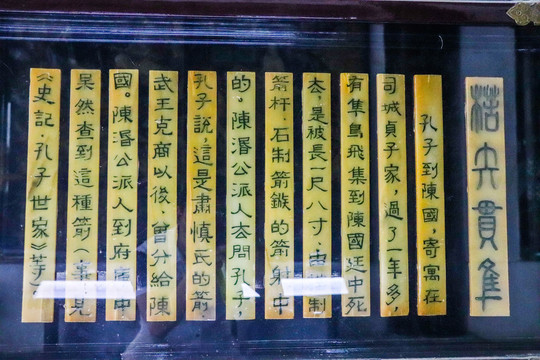 楛矢貫隼
孔子到陳國，寄寓在
司城貞子家，過了一年多，
有隼鳥飛集到陳國廷中死
去，是被長一尺八寸，由 制
箭杆，石制箭鏃的箭射中
的。陳湣公派人去問孔子，
孔子說，這是肅慎氏的箭，
武王克商以後，曾分給陳
國。陳湣公派人到府庫中
果然查到這種箭。事見
《史記·孔子世家》等。